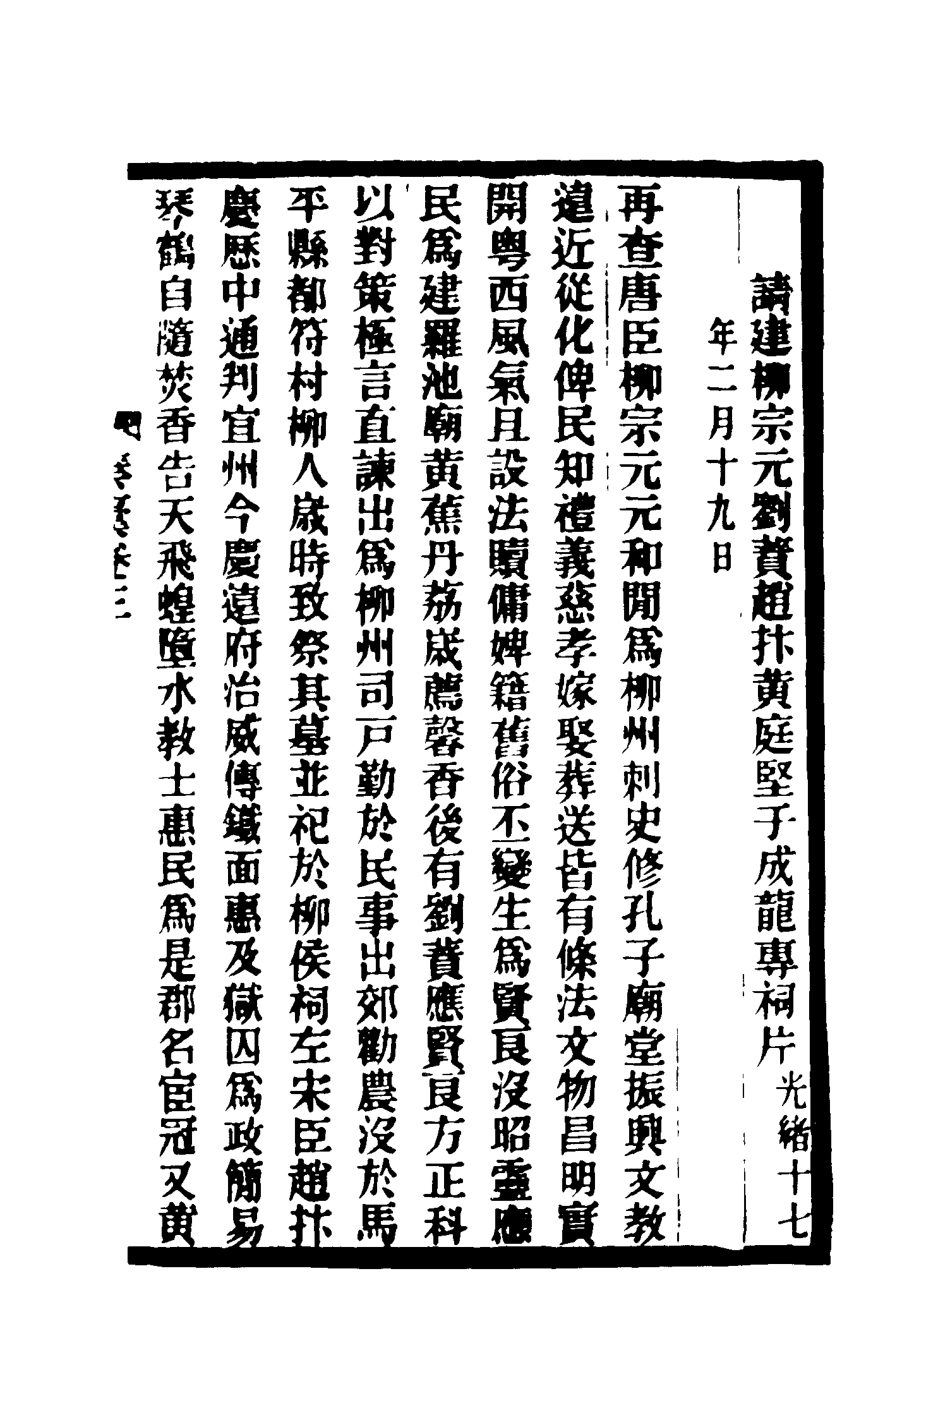 請建柳宗元劉蕡趙抃黃庭堅于成龍專祠片光緒十七
年二月十九日
再查唐臣柳宗元元和閒爲柳州刺史修孔子廟堂振興文教
遠近從化俾民知禮義慈孝嫁娶葬送皆有條法文物昌明實
開粤西風氣且設法贖傭婢籍舊俗丕變生爲賢良沒昭靈應
民爲建羅池廟黃蕉丹荔歲薦馨香後有劉蕡應賢良方正科
以對策極言直諫出爲柳州司戸勤於民事出郊勸農沒於馬
平縣都符村柳人歲時致祭其墓並祀於柳侯祠左宋臣趙抃
慶歷中通判宜州今慶遠府治威傳鐵面惠及獄囚爲政簡易
琴鶴自隨焚香告天飛蝗墮水教士惠民爲是郡名宦冠又黃
卷三